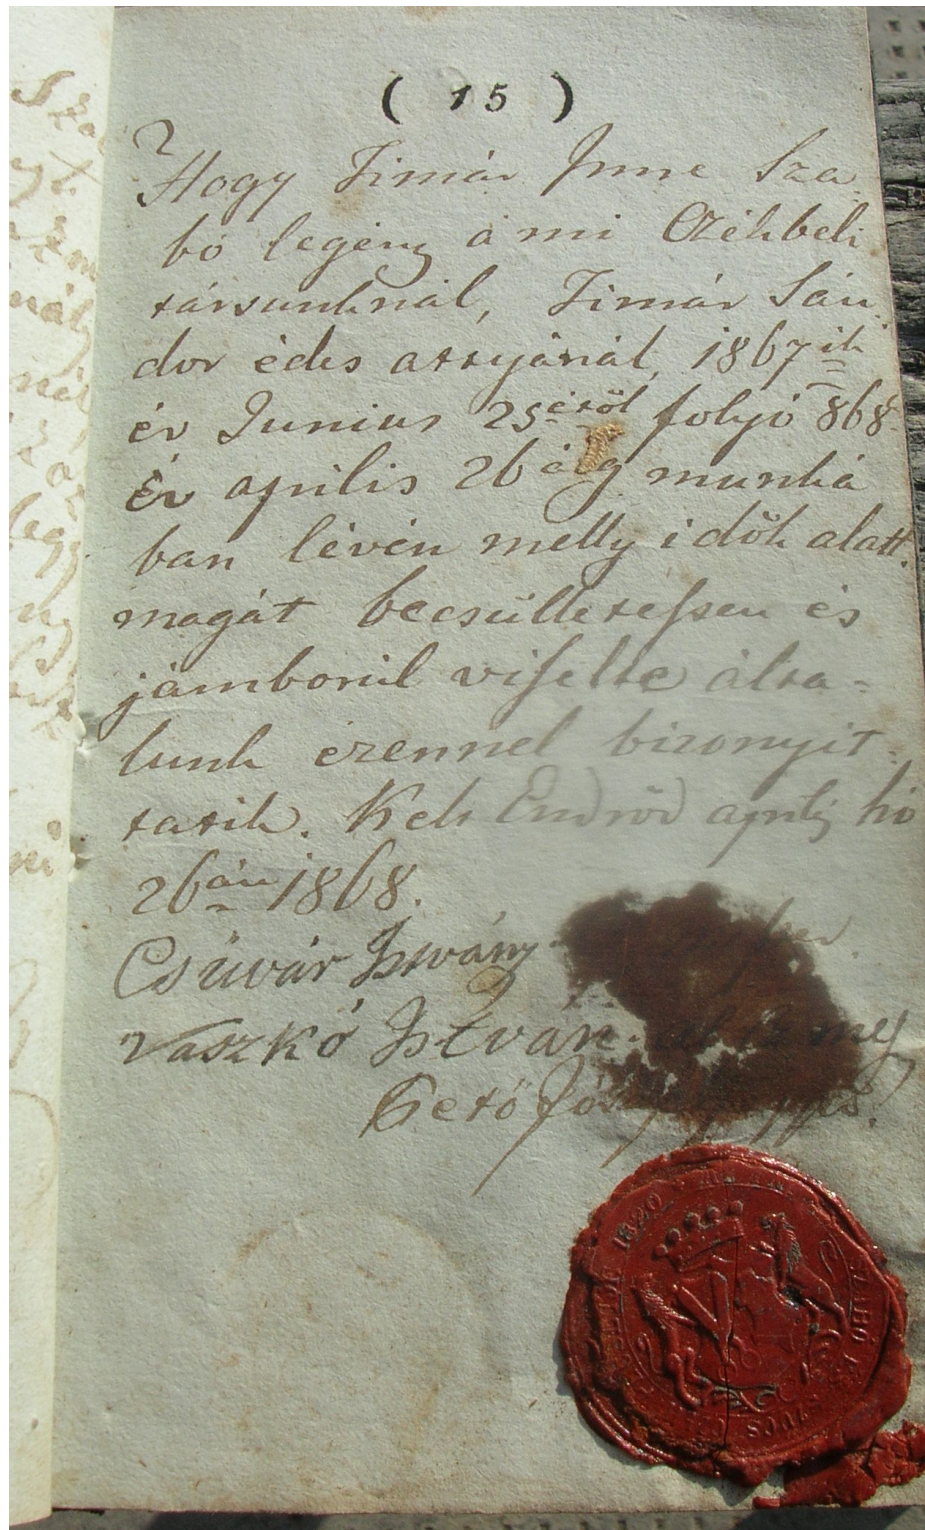 ( 15 )
Hogy Timár Imre Sza-
bó legény á mi Czéhbeli
társunknál, Timár Sán-
dor édes attyánál, 1867ik
év Junius 25étöl folyó 868
Év április 26áig munká
ban lévén melly idők alatt
magát becsülletessen és
jámborúl viselte álta-
lunk ezennel bizonyit-
tatik. Kelt Endrőd april hó
26án 1868.
Csúvár István
Vaszkó István
1820
SZABÓ